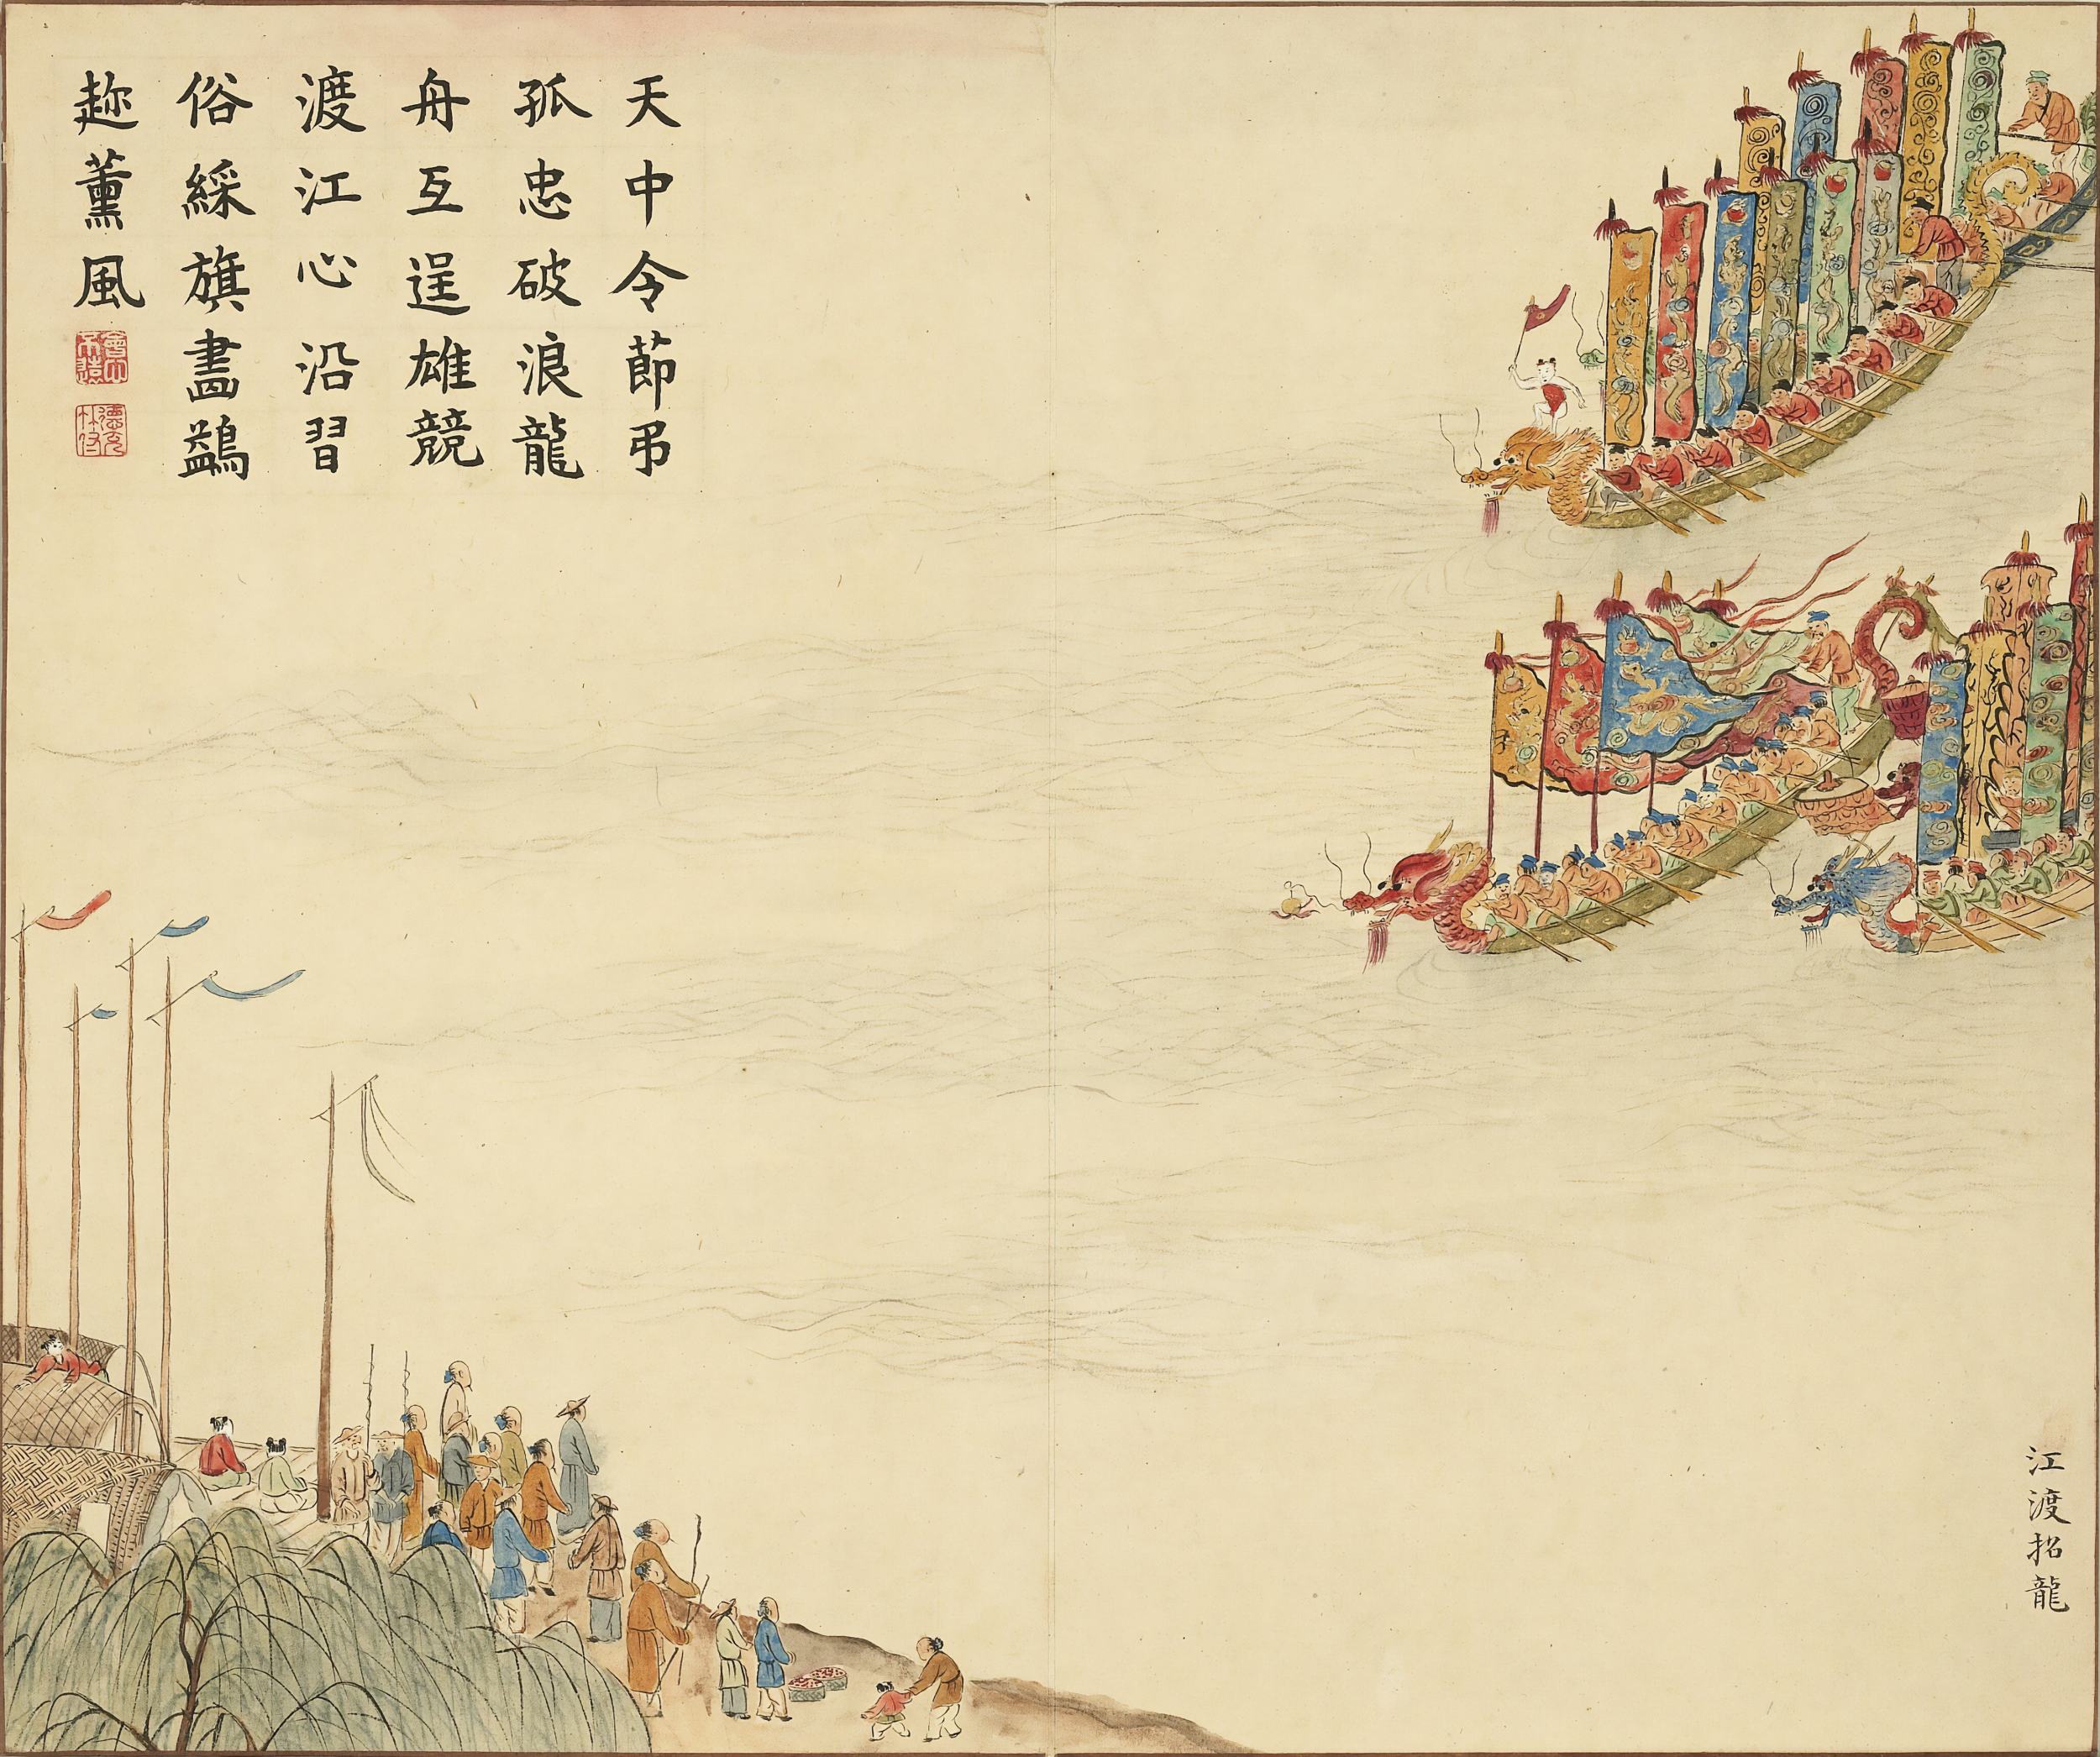 天中令節弔
孤忠破浪龍
舟互逞雄競
渡江心沿習
俗綵旗畵鷁
趂薰風
江渡招龍